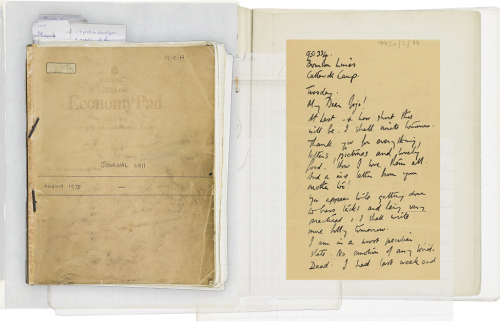 Economy Pad
JOURNAL LXII
AUGUST 1975
Bourlon Lines
Catterick Camp.
Tuesday.
My Dear Jojo!
At last - & how short this
will be. I shall write tomorrow.
Thank you for everything,
letters, pictures and lovely
food. How I love them all.
And a nice letter from your
mother too!
You appear to be getting down
to brass tacks and being very
practical & I shall write
more fully tomorrow.
I am in a most peculiar
state. No emotion of any kind.
Dead. I had last weekend